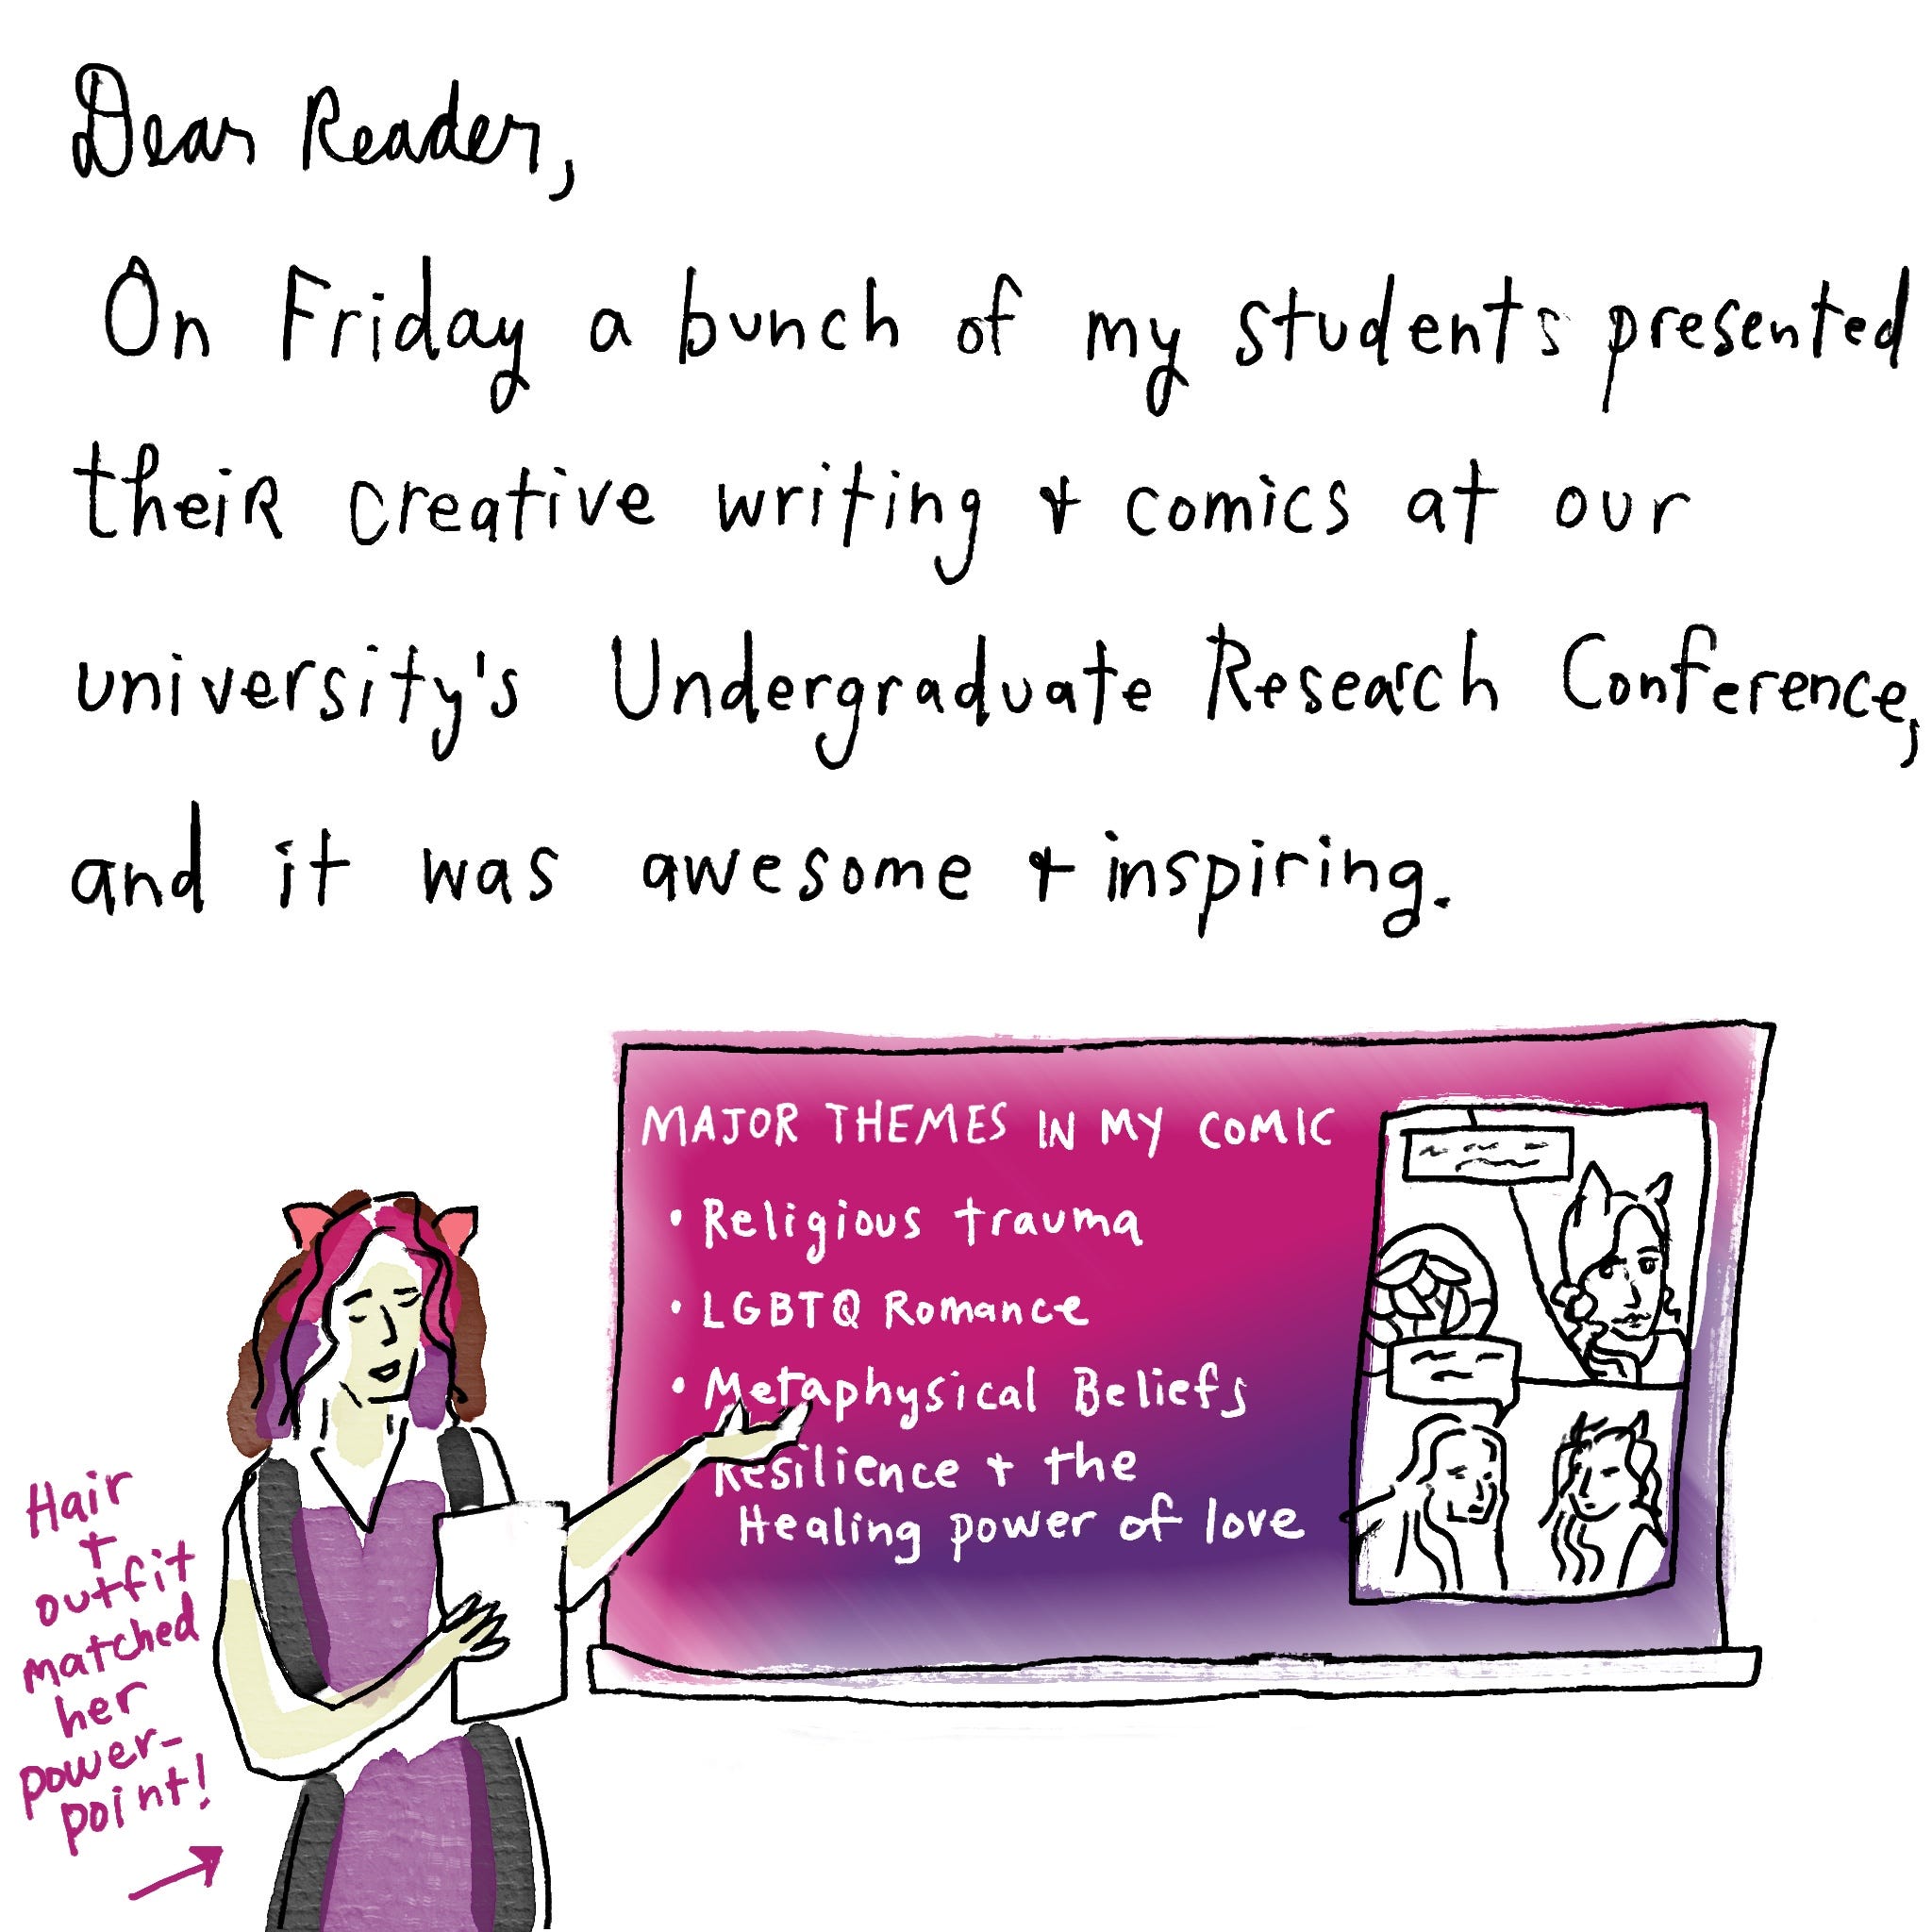 Dear Reader,
On Friday a bunch of my students presented
their creative writing + comics at our
university's Undergraduate Research Conference,
and it was awesome + inspiring.
MAJOR THEMES IN MY COMIC
• Religious trauma
• LGBTQ Romance
• Metaphysical Beliefs
Resilience + the
Healing power of love
Hair
+
outfit
matched
her
power-
point!